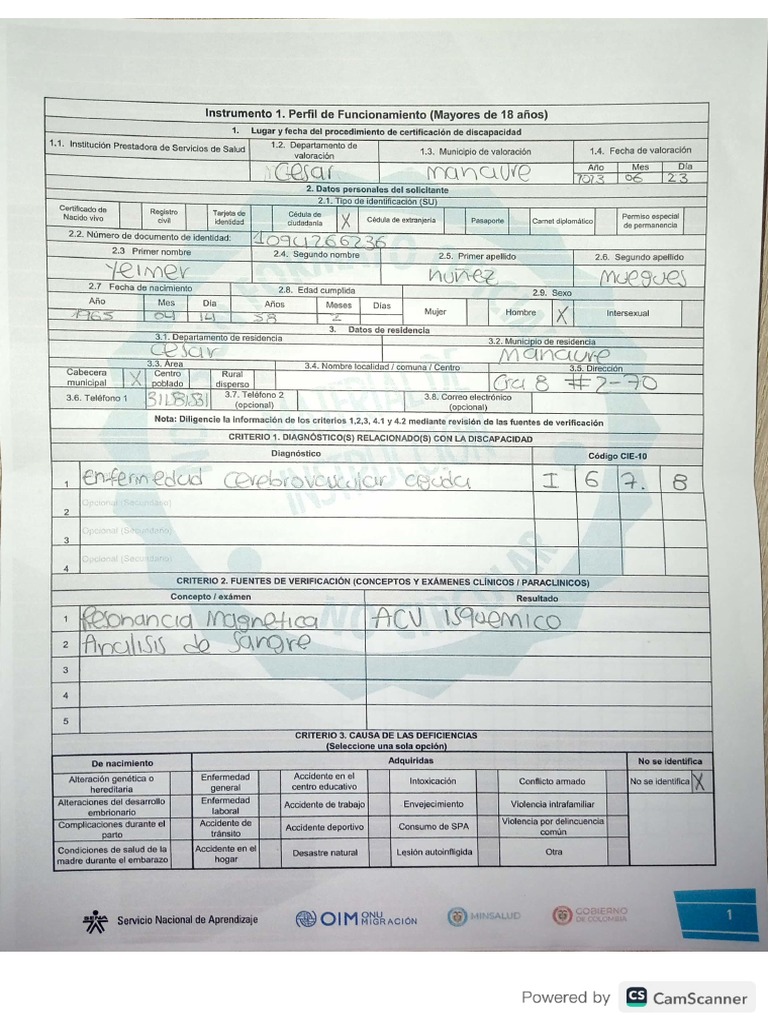 Instrumento 1. Perfil de Funcionamiento (Mayores de 18 años)
1. Lugar y fecha del procedimiento de certificación de discapacidad
1.1. Institución Prestadora de Servicios de Salud
1.2. Departamento de valoración
1.3. Municipio de valoración
1.4. Fecha de valoración
Cesar
manaure
Año Mes Día
2023 06 23
2. Datos personales del solicitante
2.1. Tipo de identificación (SU)
Certificado de Nacido vivo
Registro civil
Tarjeta de identidad
Cédula de ciudadanía X
Cédula de extranjería
Pasaporte
Carnet diplomático
Permiso especial de permanencia
2.2. Número de documento de identidad: 1094266236
2.3 Primer nombre
2.4. Segundo nombre
2.5. Primer apellido
2.6. Segundo apellido
Yeimer nuñez muegues
2.7 Fecha de nacimiento
2.8. Edad cumplida
2.9. Sexo
Año Mes Día Años Meses Días
Mujer Hombre X Intersexual
1965 04 14 58 2
3. Datos de residencia
3.1. Departamento de residencia
3.2. Municipio de residencia
Cesar manaure
3.3. Área
3.4. Nombre localidad / comuna / Centro
3.5. Dirección
Cabecera municipal X
Centro poblado
Rural disperso
Cra 8 #2-70
3.6. Teléfono 1
3.7. Teléfono 2 (opcional)
3.8. Correo electrónico (opcional)
Nota: Diligencie la información de los criterios 1,2,3, 4.1 y 4.2 mediante revisión de las fuentes de verificación
CRITERIO 1. DIAGNÓSTICO(S) RELACIONADO(S) CON LA DISCAPACIDAD
Diagnóstico Código CIE-10
1 Enfermedad cerebrovascular aguda I 6 7. 8
2 Opcional (Secundario)
3 Opcional (Secundario)
4 Opcional (Secundario)
CRITERIO 2. FUENTES DE VERIFICACIÓN (CONCEPTOS Y EXÁMENES CLÍNICOS / PARACLINICOS)
Concepto / exámen Resultado
1 Resonancia Magnetica ACV isquemico
2 Analisis de sangre
3
4
5
CRITERIO 3. CAUSA DE LAS DEFICIENCIAS
(Seleccione una sola opción)
De nacimiento Adquiridas No se identifica
Alteración genética o hereditaria
Enfermedad general
Accidente en el centro educativo
Intoxicación
Conflicto armado
No se identifica X
Alteraciones del desarrollo embrionario
Enfermedad laboral
Accidente de trabajo
Envejecimiento
Violencia intrafamiliar
Complicaciones durante el parto
Accidente de tránsito
Accidente deportivo
Consumo de SPA
Violencia por delincuencia común
Condiciones de salud de la madre durante el embarazo
Accidente en el hogar
Desastre natural
Lesión autoinfligida
Otra
Servicio Nacional de Aprendizaje
OIM ONU MIGRACIÓN
MINSALUD
GOBIERNO DE COLOMBIA
1
Powered by CS CamScanner